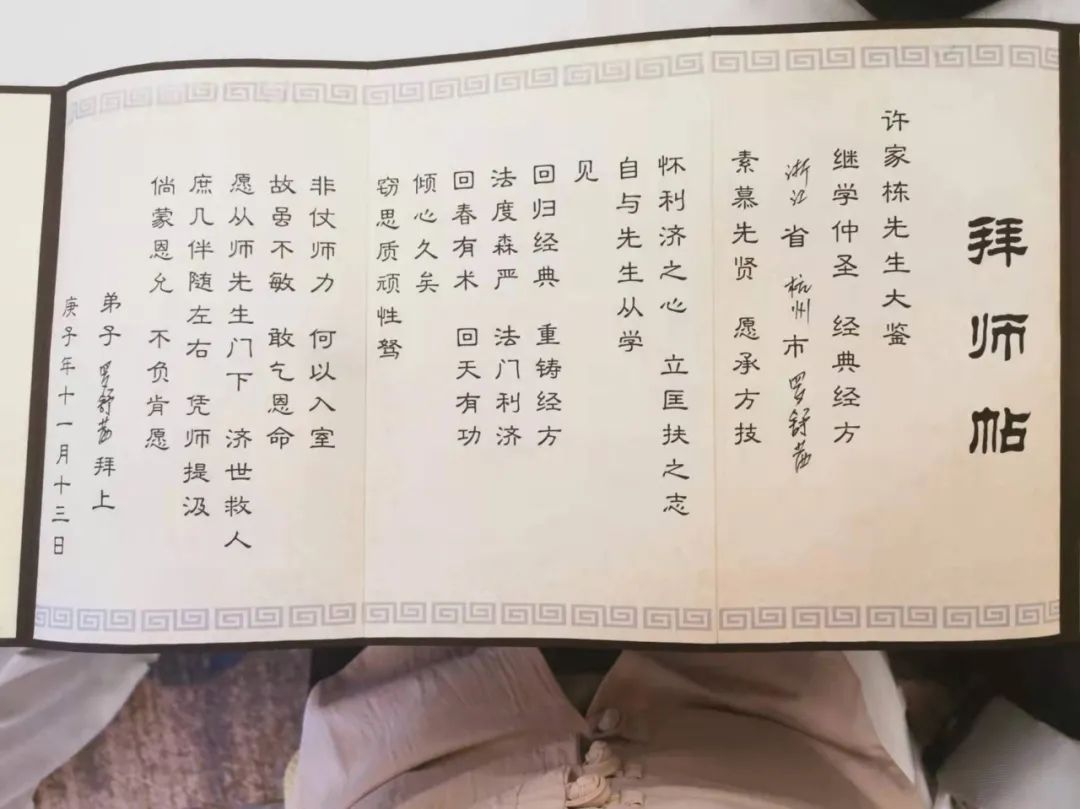 拜师帖
许家栋先生大鉴
继学仲圣 经典经方
浙江省 杭州市 罗舒茜
素慕先贤 愿承方技
怀利济之心 立匡扶之志
自与先生从学
见
回归经典 重铸经方
法度森严 法门利济
回春有术 回天有功
倾心久矣
窃思质顽性驽
非仗师力 何以入室
故虽不敏 敢乞恩命
愿从师先生门下 济世救人
庶几伴随左右 凭师提汲
倘蒙恩允 不负肯愿
弟子 罗舒茜 拜上
庚子年十一月十三日